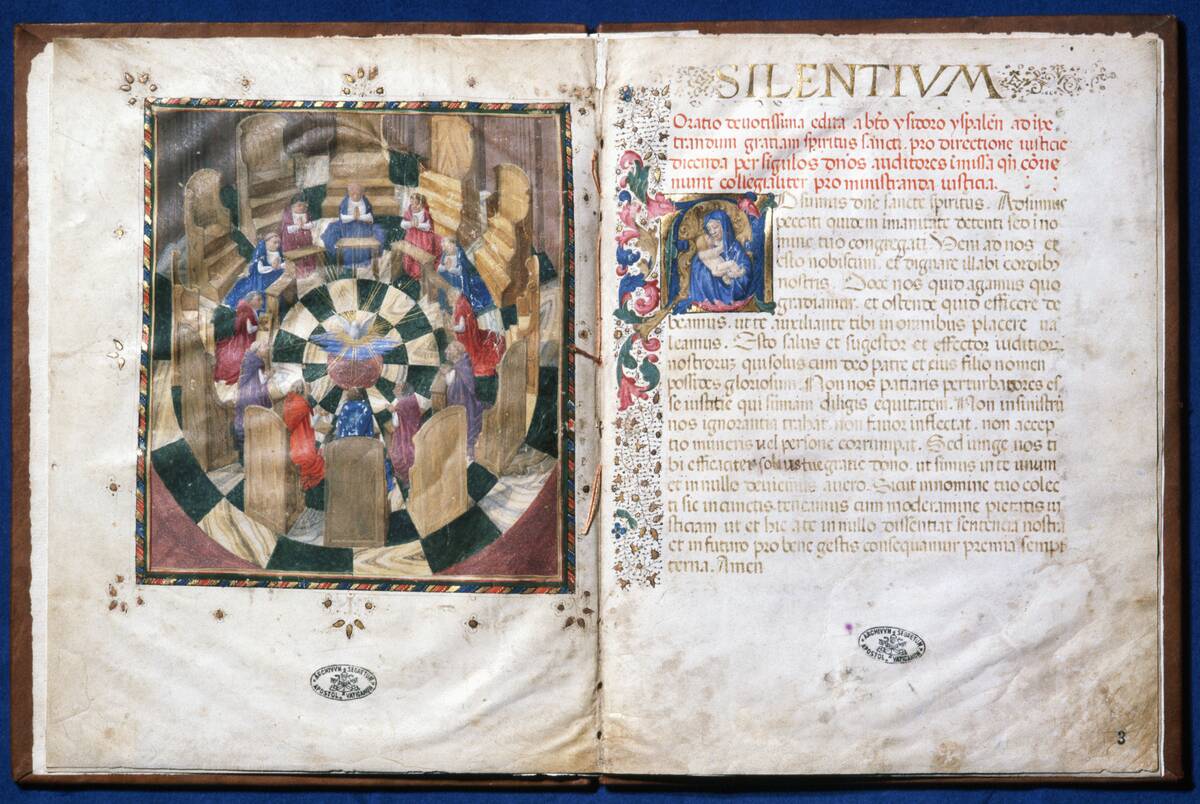 SILENTIVM
Oratio deuotissima edita a bto ysidoro yspalen ad ipe
trandum gratiam spiritus sancti. pro directione iusticie
dicenda per sigulos dnos auditores i missa qn cõue
niunt collegialiter pro ministranda iusticia.
Adsumus dne sancte spiritus. Adsumus
peccati quidem imanitate detenti sed i no
mine tuo congregati Veni ad nos et
esto nobiscum. et dignare illabi cordibus
nostris. Doce nos quid agamus quo
gradiamur. et ostende quid efficere de
beamus. ut te auxiliante tibi in omnibus placere ua
leamus. Esto salus et sugestor et effector iudicior
nostrorum qui solus cum deo patre et eius filio nomen
possides gloriosum. Non nos patiaris perturbatores es
se iustitie qui sumam diligis equitatem. Non in sinistrum
nos ignorantia trahat. non fauor inflectat. non accep
tio muneris uel persone corrumpat. Sed iunge nos ti
bi efficaciter solius tue gratie dono. ut simus in te unum
et in nullo deuiemus a uero. Sicut in nomine tuo colec
ti sic in cunctis teneamus cum moderamine pietatis iu
sticiam ut et hic a te in nullo dissentiat sentencia nostra
et in futuro pro bene gestis consequamur premia sempi
terna. Amen
ARCHIVVM SECRETVM
APOSTOL. VATICANVM
ARCHIVVM SECRETVM
APOSTOL. VATICANVM
3